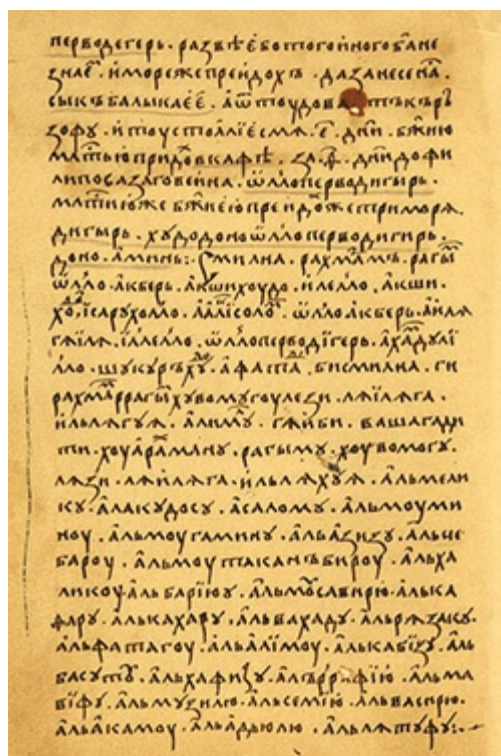 перводегерь. развѣ е бо того иного б҃а не
знаеⷨ. и море же преидохъ. да занесе на.
сыкъ балыкаее. а ѿтоудова тъкъръ
зофу. и тоу стоалїесмя. е҃. дн҃и. бж҃їею
млⷭ҇тью придохⷪ҇ в кафѣ. за ѳ҃. дн҃и до фи
липова заговеина. ѡлло перводигырь.
млⷭ҇тїю же бж҃иею преидоⷯ же три моря.
дигырь. худо доно ѡлло перводигирь.
доно. аминь: смилна. рахмамъ. рагыⷨ
ѡлло. акберь. акши хоудо. илелло. акши.
хоⷣ. їса рухолло. аалїсолоⷨ. ѡлло акберь. аиля
гяїля. їллелло. ѡлло перводїгерь. ахаⷨдулї
лло. шукуръ хуⷣ. афатаⷣ. бисмилна. ги
рахмаⷨ ррагыⷨ хувомугоулези. ляїляга.
ильлягуя. алимуⷧ. гяиби. вашагади
ти. хоуарахману. рагыму. хоувомогу.
лязи. ляиляга. ильляхуя. альмели
ку. алакудосу. асалому. альмоуми
ноу. альмоугамину. альазизу. альче
бароу. альмоутаканъбироу. альха
ликоу альбарїюу. альмусавирю. алька
фару. алькахару. альвахаду. альрязаку.
альфатагоу. альалїмоу. алькабїзу. аль
басуту. альхафизу. алъррафїю. альма
вїфу. альмузилю. альсемїю. альвасирю.
альакамоу. альадьюлю. альлятуфу:~